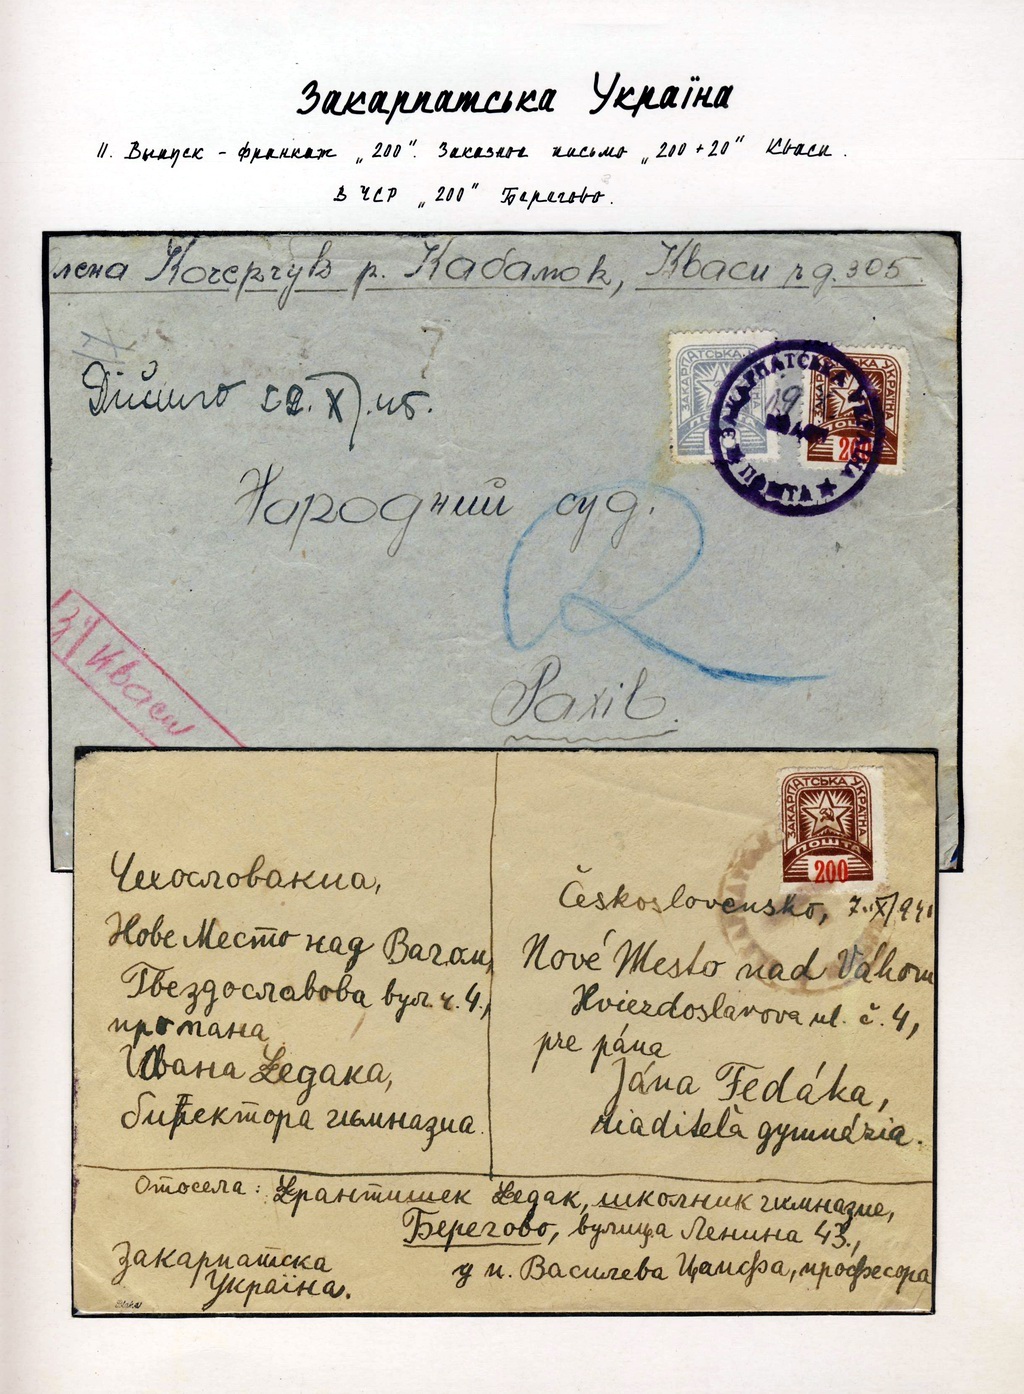 Закарпатська Україна
II. Выпуск - франкаж „200". Заказное письмо „200+20" Кваси.
В ЧСР „200" Берегово.
лена Кочерчув р. Кабалюк, Кваси ч д. 305.
ЗАКАРПАТСЬКА УКРАЇНА
ПОШТА
200
ЗАКАРПАТСЬКА УКРАЇНА
19
ПОШТА
Дійшло 22.X.45.
Народний суд.
R
Рахів.
Кваси
ЗАКАРПАТСЬКА УКРАЇНА
ПОШТА
200
Чехословакиа,
Нове Место над Вагом,
Гвездославова вул. ч. 4.,
про пана
Ивана Федака,
директора гимназиа.
Československo, 7.X/94
Nové Mesto nad Váhom
Hviezdoslavova ul. č. 4,
pre pána
Jána Fedáka,
riaditeľa gymnázia.
Отосела: Франтишек Федак, школник гимназие,
Берегово, вулица Ленина 43.,
у п. Василева Цапфа, професора
Закарпатска
Україна.